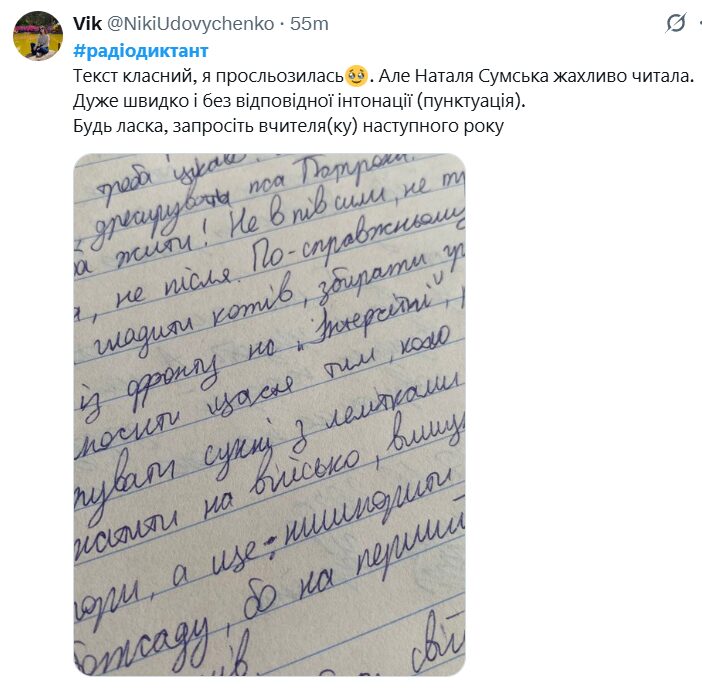 Vik @NikiUdovychenko · 55m
#радіодиктант
Текст класний, я просльозилась🥹. Але Наталя Сумська жахливо читала.
Дуже швидко і без відповідної інтонації (пунктуація).
Будь ласка, запросіть вчителя(ку) наступного року
треба
дресирувати пса Патрона.
жити! Не в пів сили, не
, не після. По-справжньому
гладити котів, збирати
із фронту на „Інтерсіті",
носити щастя тим, кого
сукні з лелітками
на військо,
, а ще: нишпорити
, бо на перший